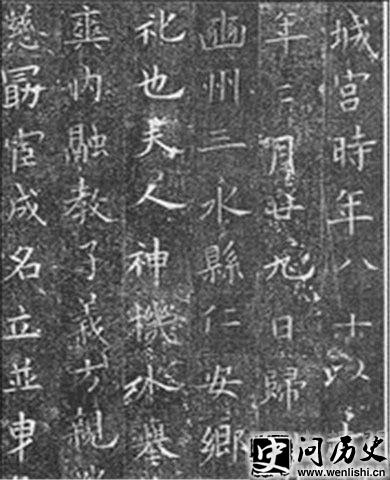 城宮時年八十以大
年三月廿九日歸
豳州三水縣仁安鄉
礼也夫人神機外舉
爽内融教子義方親
慈勗宦成名立並車
史问历史
www.wenlishi.cn